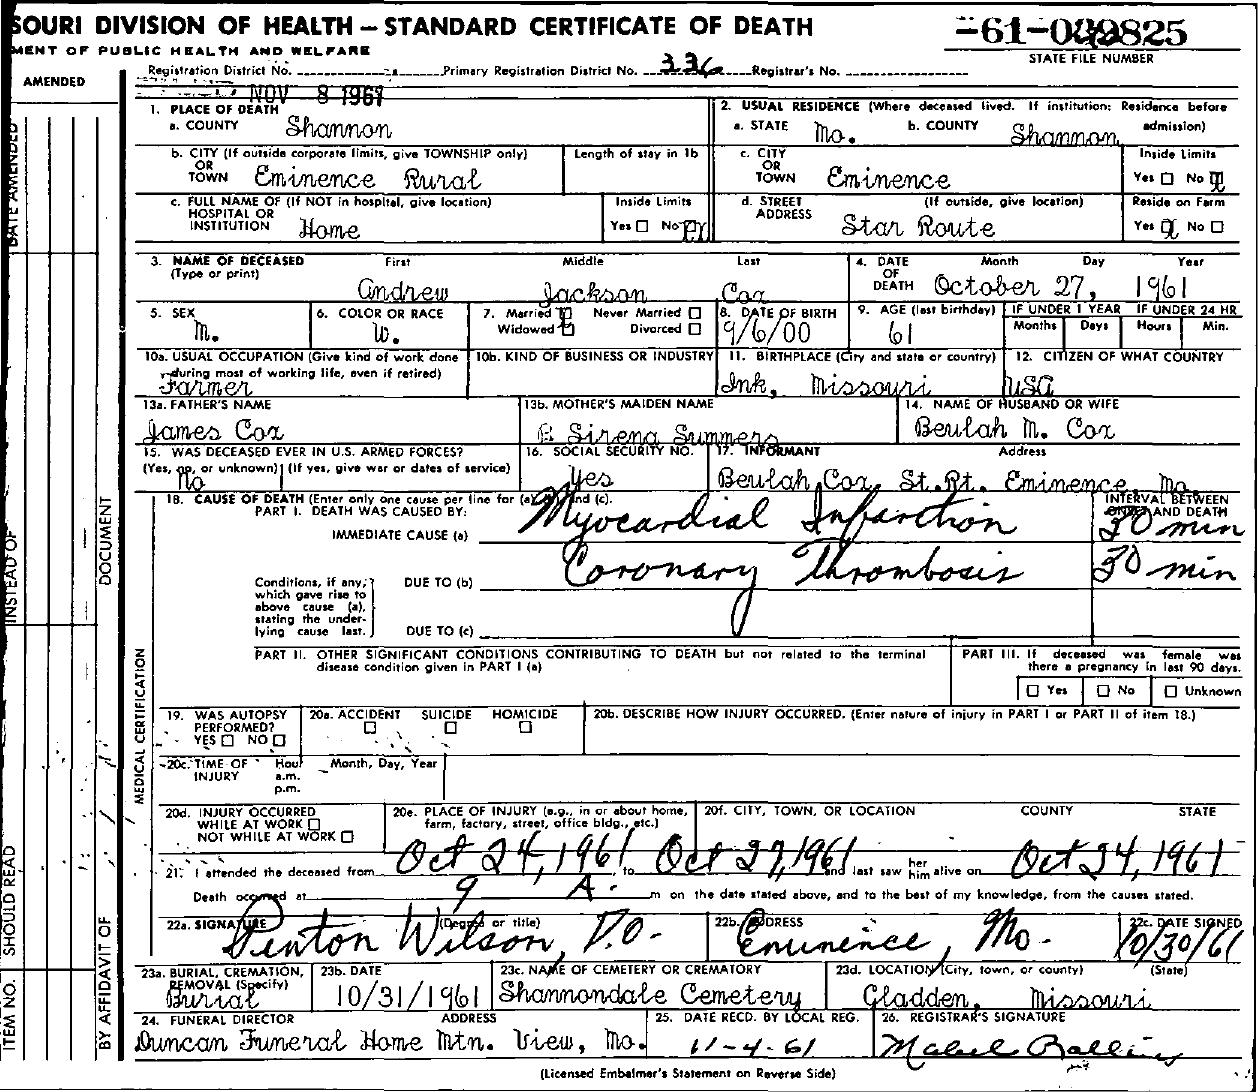 SOURI DIVISION OF HEALTH — STANDARD CERTIFICATE OF DEATH
-61-0 825
MENT OF PUBLIC HEALTH AND WELFARE
STATE FILE NUMBER
AMENDED
Registration District No. Primary Registration District No. 336 Registrar's No.
NOV 8 1961
1. PLACE OF DEATH
a. COUNTY Shannon
2. USUAL RESIDENCE (Where deceased lived. If institution: Residence before admission)
a. STATE Mo. b. COUNTY Shannon
b. CITY (If outside corporate limits, give TOWNSHIP only) OR TOWN Eminence Rural
Length of stay in 1b
c. CITY OR TOWN Eminence
Inside Limits
Yes ☐ No ☒
c. FULL NAME OF (If NOT in hospital, give location) HOSPITAL OR INSTITUTION Home
Inside Limits
Yes ☐ No ☒
d. STREET ADDRESS (If outside, give location) Star Route
Reside on Farm
Yes ☒ No ☐
3. NAME OF DECEASED (Type or print) First Middle Last
Andrew Jackson Cox
4. DATE OF DEATH Month Day Year
October 27, 1961
5. SEX
M.
6. COLOR OR RACE
W.
7. Married ☒ Never Married ☐
Widowed ☐ Divorced ☐
8. DATE OF BIRTH
9/6/00
9. AGE (last birthday)
61
IF UNDER 1 YEAR IF UNDER 24 HR
Months Days Hours Min.
10a. USUAL OCCUPATION (Give kind of work done during most of working life, even if retired)
Farmer
10b. KIND OF BUSINESS OR INDUSTRY
11. BIRTHPLACE (City and state or country)
Ink, Missouri
12. CITIZEN OF WHAT COUNTRY
USA
13a. FATHER'S NAME
James Cox
13b. MOTHER'S MAIDEN NAME
Sirena Summers
14. NAME OF HUSBAND OR WIFE
Beulah M. Cox
15. WAS DECEASED EVER IN U.S. ARMED FORCES?
(Yes, no, or unknown) (If yes, give war or dates of service)
No
16. SOCIAL SECURITY NO.
Yes
17. INFORMANT Address
Beulah Cox St. Rt. Eminence, Mo.
18. CAUSE OF DEATH (Enter only one cause per line for (a), (b), and (c).
INTERVAL BETWEEN ONSET AND DEATH
PART I. DEATH WAS CAUSED BY:
IMMEDIATE CAUSE (a) Myocardial Infarction 30 min
Conditions, if any, which gave rise to above cause (a), stating the underlying cause last.
DUE TO (b) Coronary Thrombosis 30 min
DUE TO (c)
PART II. OTHER SIGNIFICANT CONDITIONS CONTRIBUTING TO DEATH but not related to the terminal disease condition given in PART I (a)
PART III. If deceased was female was there a pregnancy in last 90 days.
☐ Yes ☐ No ☐ Unknown
19. WAS AUTOPSY PERFORMED?
YES ☐ NO ☐
20a. ACCIDENT SUICIDE HOMICIDE
☐ ☐ ☐
20b. DESCRIBE HOW INJURY OCCURRED. (Enter nature of injury in PART I or PART II of item 18.)
20c. TIME OF INJURY Hour a.m. p.m. Month, Day, Year
20d. INJURY OCCURRED
WHILE AT WORK ☐
NOT WHILE AT WORK ☐
20e. PLACE OF INJURY (e.g., in or about home, farm, factory, street, office bldg., etc.)
20f. CITY, TOWN, OR LOCATION COUNTY STATE
21. I attended the deceased from Oct 24, 1961 to Oct 27, 1961 and last saw her him alive on Oct 24, 1961
Death occurred at 9 A. m on the date stated above, and to the best of my knowledge, from the causes stated.
22a. SIGNATURE (Degree or title)
Penton Wilson, D.O.
22b. ADDRESS
Eminence, Mo.
22c. DATE SIGNED
10/30/61
23a. BURIAL, CREMATION, REMOVAL (Specify)
Burial
23b. DATE
10/31/1961
23c. NAME OF CEMETERY OR CREMATORY
Shannondale Cemetery
23d. LOCATION (City, town, or county) (State)
Gladden, Missouri
24. FUNERAL DIRECTOR ADDRESS
Duncan Funeral Home Mtn. View, Mo.
25. DATE RECD. BY LOCAL REG.
11-4-61
26. REGISTRAR'S SIGNATURE
Mabel
(Licensed Embalmer's Statement on Reverse Side)
DATE AMENDED
INSTEAD OF
DOCUMENT
MEDICAL CERTIFICATION
SHOULD READ
ITEM NO.
BY AFFIDAVIT OF